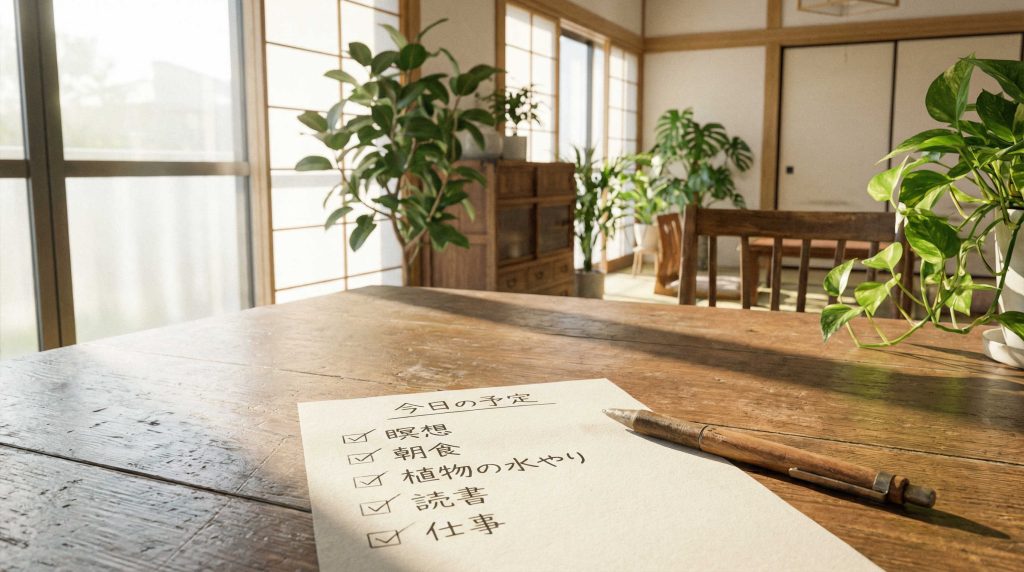 今日の予定
☑ 瞑想
☑ 朝食
☑ 植物の水やり
☑ 読書
☑ 仕事